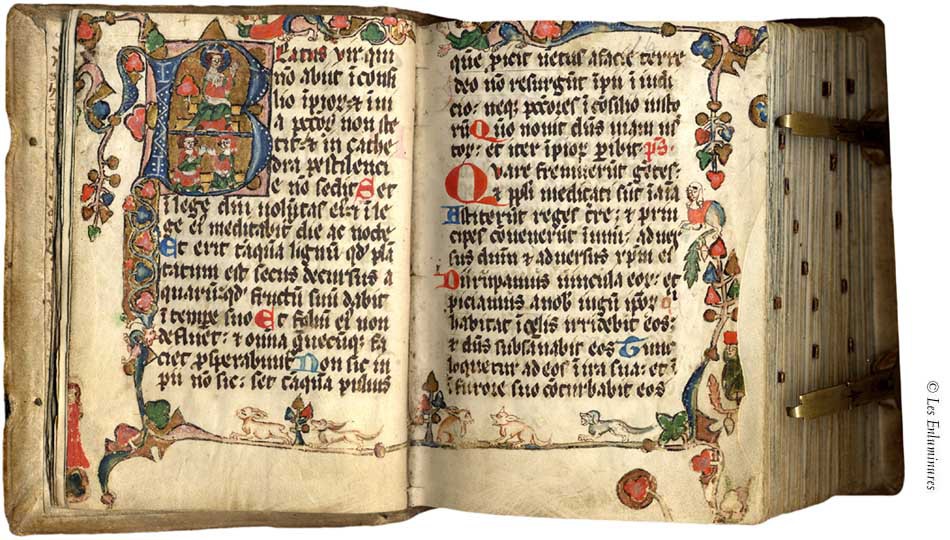 Beatus vir qui
nō abiit ī consi
lio īpiorꝝ & in ui
a p̄ctorꝝ non ste
tit: & in cathe
dra pestilenci
e nō sedit Set
ī lege dn̄i uolūtas ei: & ī le
ge ei meditabit̄ die ac nocte
Et erit tāqua lignū qd̄ plā
tatum est secus decursus a
quarū: qd̄ fructū suū dabit
ī tempore suo Et foliū ei non
defluet: & omia quecūq; fa
ciet p̄sperabunt̄ Non sic im
pii nō sic: set tāqua pulius
que ṗicit uentus a facie terre
Ideo nō resurgūt īpii ī iudi
cio: neq; p̄ctores ī cōsilio iusto
rū Qm̄o nouit dn̄s uiam ius
torꝝ: et iter īpiorꝝ peribit p̄s.
Quare fremuerūt gētes:
& ppl̄i meditati sūt īania
Astiterūt reges t̄re: & prin
cipes cōuenerūt ī unū: aduer
sus dn̄m & aduersus xp̄m ei
Dirūpamus uincula eorꝝ: et
piciamus a nob̄ iugū ip̄orꝝ Q
habitat ī celis irridebit eos:
& dn̄s subsanabit eos Tunc
loquetur ad eos ī ira sua: et
ī furore suo cōturbabit eos
© Les Enluminures